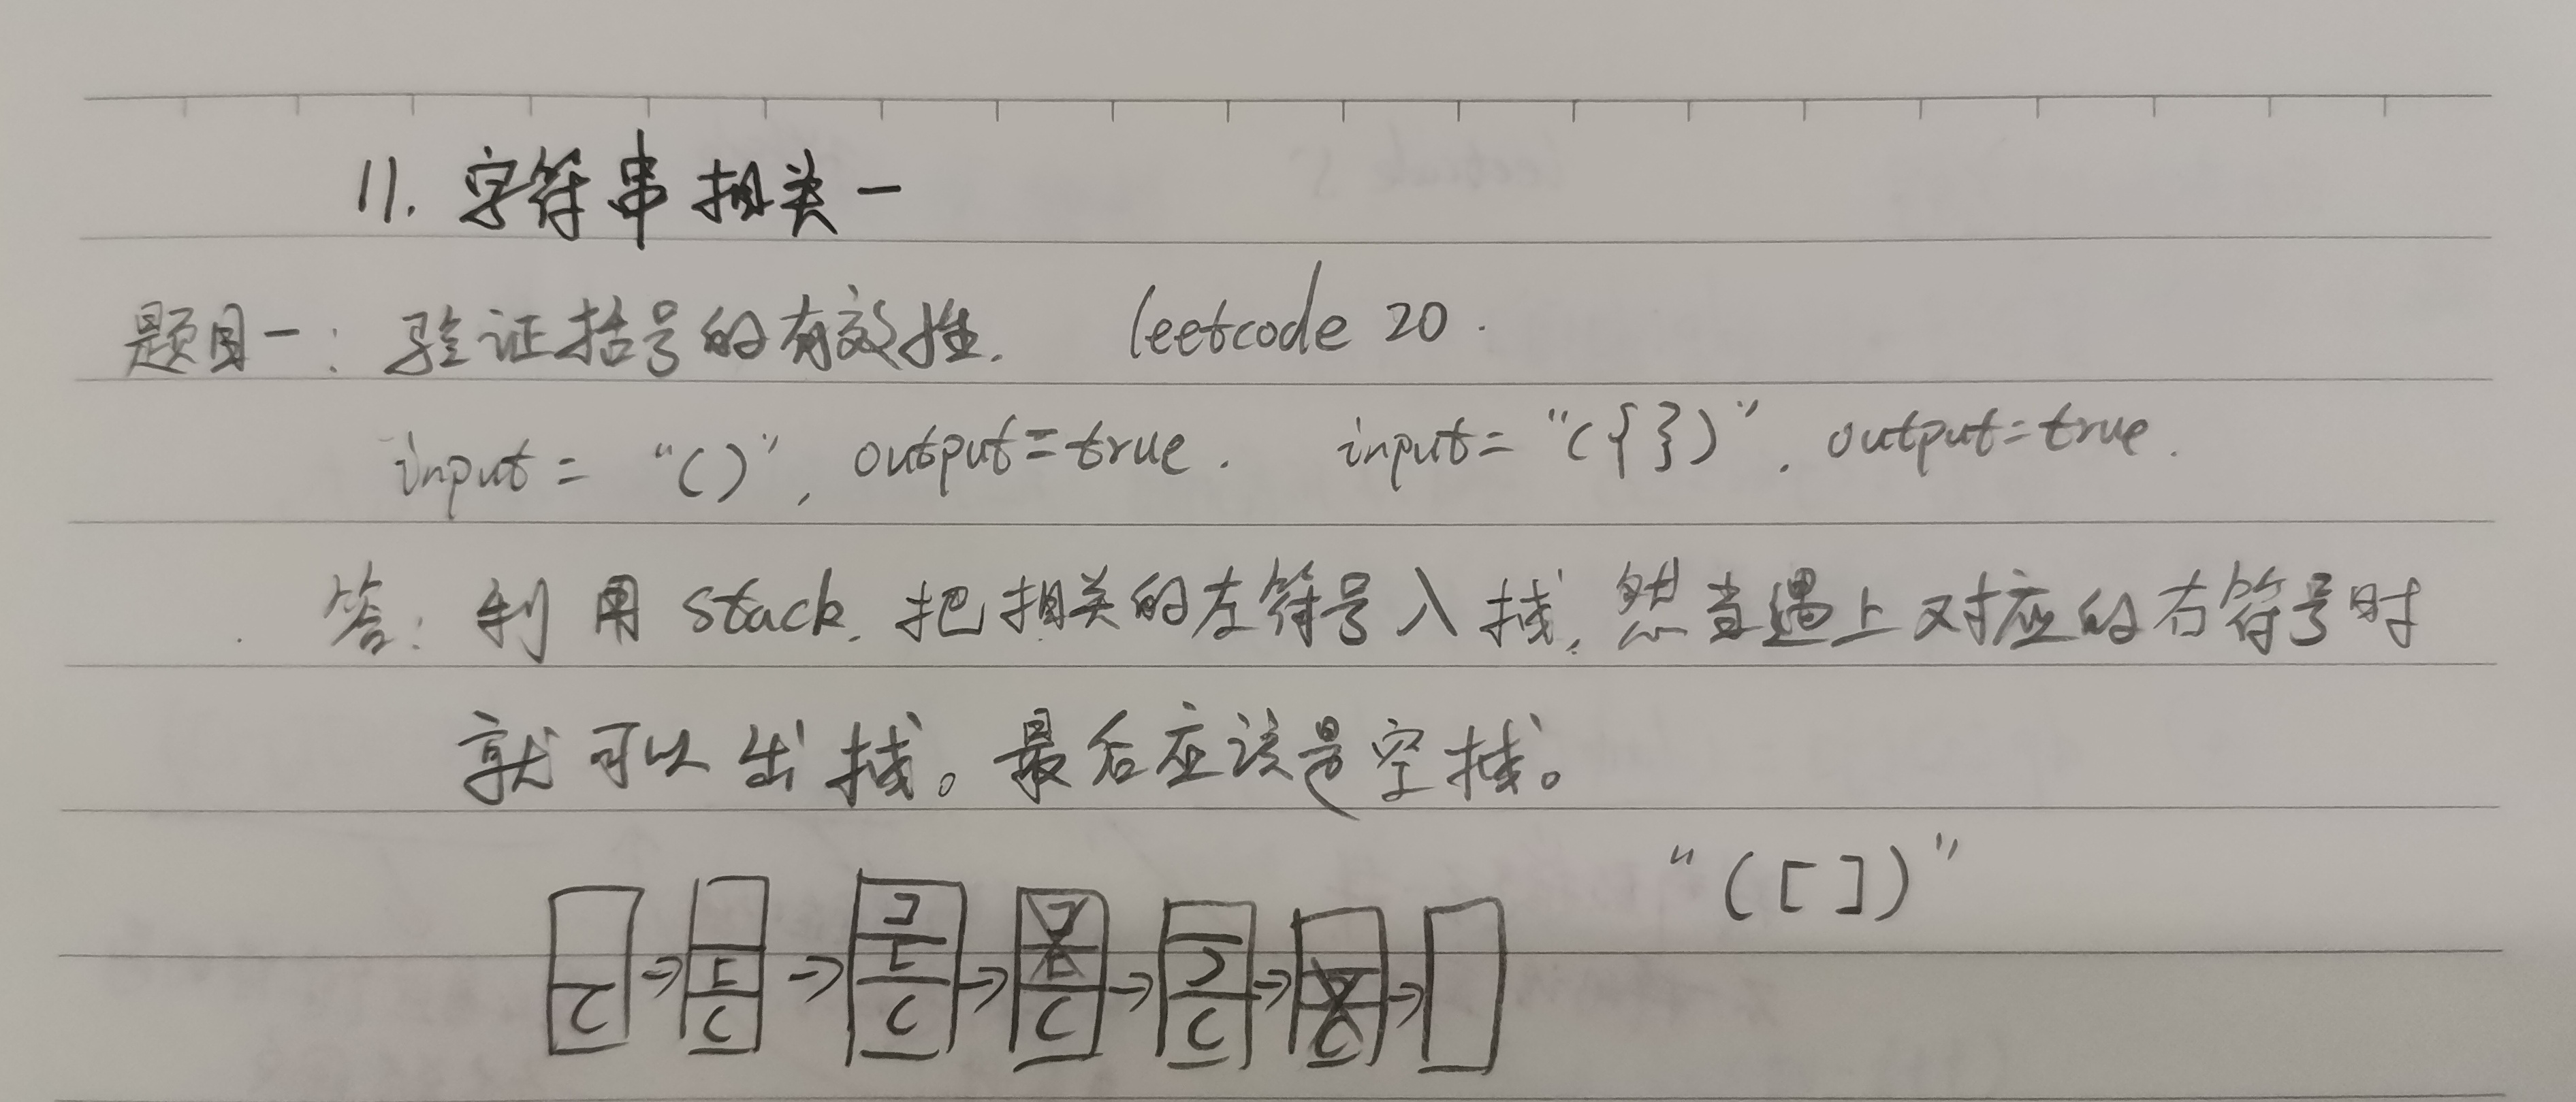 11. 字符串相关一
题目一: 验证括号的有效性. leetcode 20.
input = "()", output=true. input= "({})", output=true.
答: 利用stack. 把相关的左符号入栈, 然当遇上对应的右符号时
就可以出栈。最后应该是空栈。
"([])"
( → [ ( → ] [ ( → ] [ ( → ) ( → ) ( →